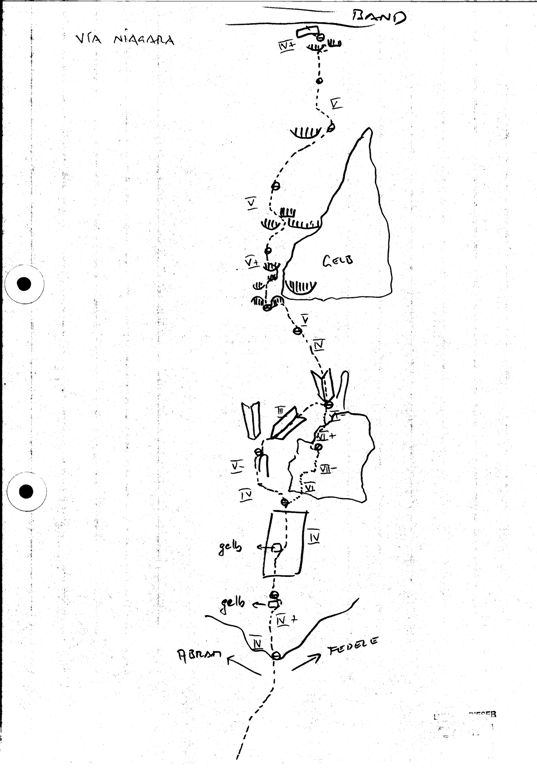 BAND
VIA NIAGARA
IV+
V
V
V+
GELB
V
IV
III
VI-
VI+
V-
VII-
IV
VI
IV
gelb
gelb
IV+
IV
ABRAM
FEDELE